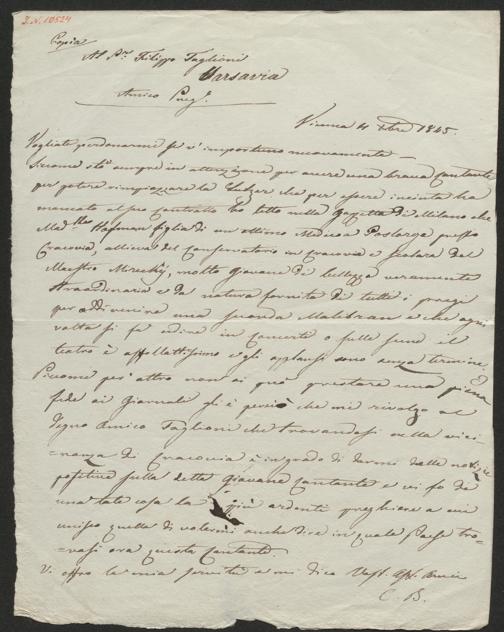 I.N. 10524
Copia
Al Sr. Filippo Taglioni
Varsavia
Amico Preg.
Vienna 4 Xbre 1845.
Vogliate perdonarmi se v'importuno nuovamente —
Siccome sto sempre in attenzione per avere una brava cantante
per potere rimpiazzare la che per essere incinta ha
mancato al suo contratto ho letto nella Gazzetta di Milano che
Mad.lla Hofman figlia di un ottimo Medico presso
Cracovia, allieva del Conservatorio in Cracovia e scolara del
Maestro Mirecki, molto giovane di bellezza veramente
straordinaria e da natura fornita di tutti i pregi
per addivenire una seconda Malibran e che ogni
volta si fa udire in concerto o sulle scene il
teatro è affollattissimo e gli applausi sono senza termine.
Siccome per altro non si può prestare una piena
fede ai Giornali gli è perciò che mi rivolgo al
degno Amico Taglioni che trovandosi nella vici-
=nanza di Cracovia è in grado di darmi delle notizie
positive sulla detta giovane cantante e vi fo di
una tale cosa le più ardenti preghiere a cui
unisco quella di volermi anche dire in quale Paese tro-
=vasi ora questa Cantante.
V. offro la mia servitù e mi dico Vost. Aff. Amico
C. B.